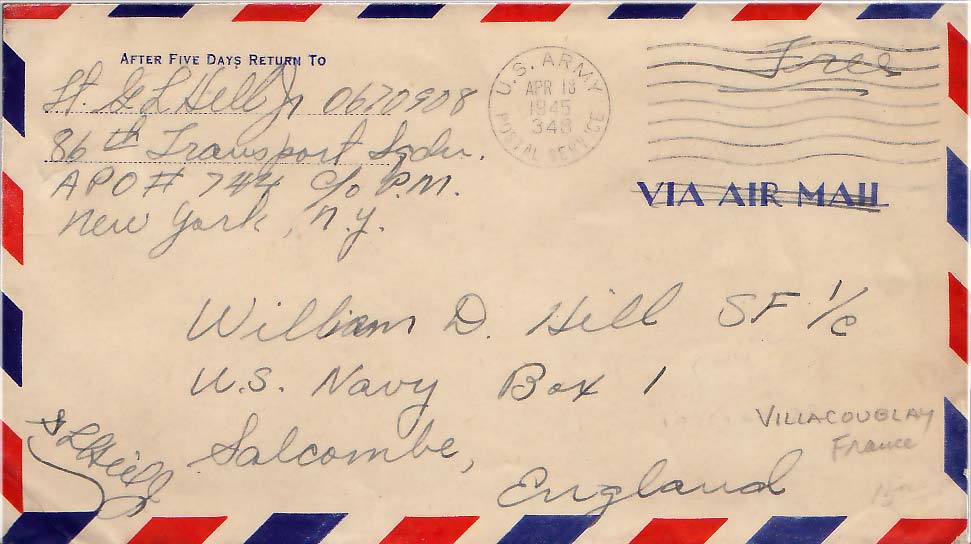 AFTER FIVE DAYS RETURN TO
Lt. G L Hill Jr 0670908
86th Transport Sqdn.
APO # 744 c/o P.M.
New York, N.Y.
U.S. ARMY
APR 18
1945
348
POSTAL SERVICE
Free
VIA AIR MAIL
William D. Hill SF 1/c
U.S. Navy Box 1
Salcombe,
England
VILLACOUBLAY
France
G L Hill Jr